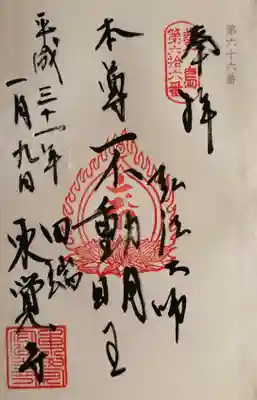 第六十六番
奉拝
豊島
第六拾六番
弘法大師
本尊 不動明王
田端 東覺寺
平成三十一年
一月九日